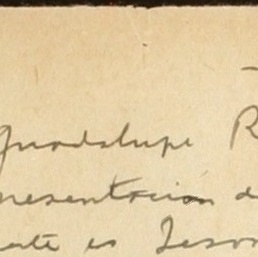 Guadalupe R
presentacion d
ente es Teson